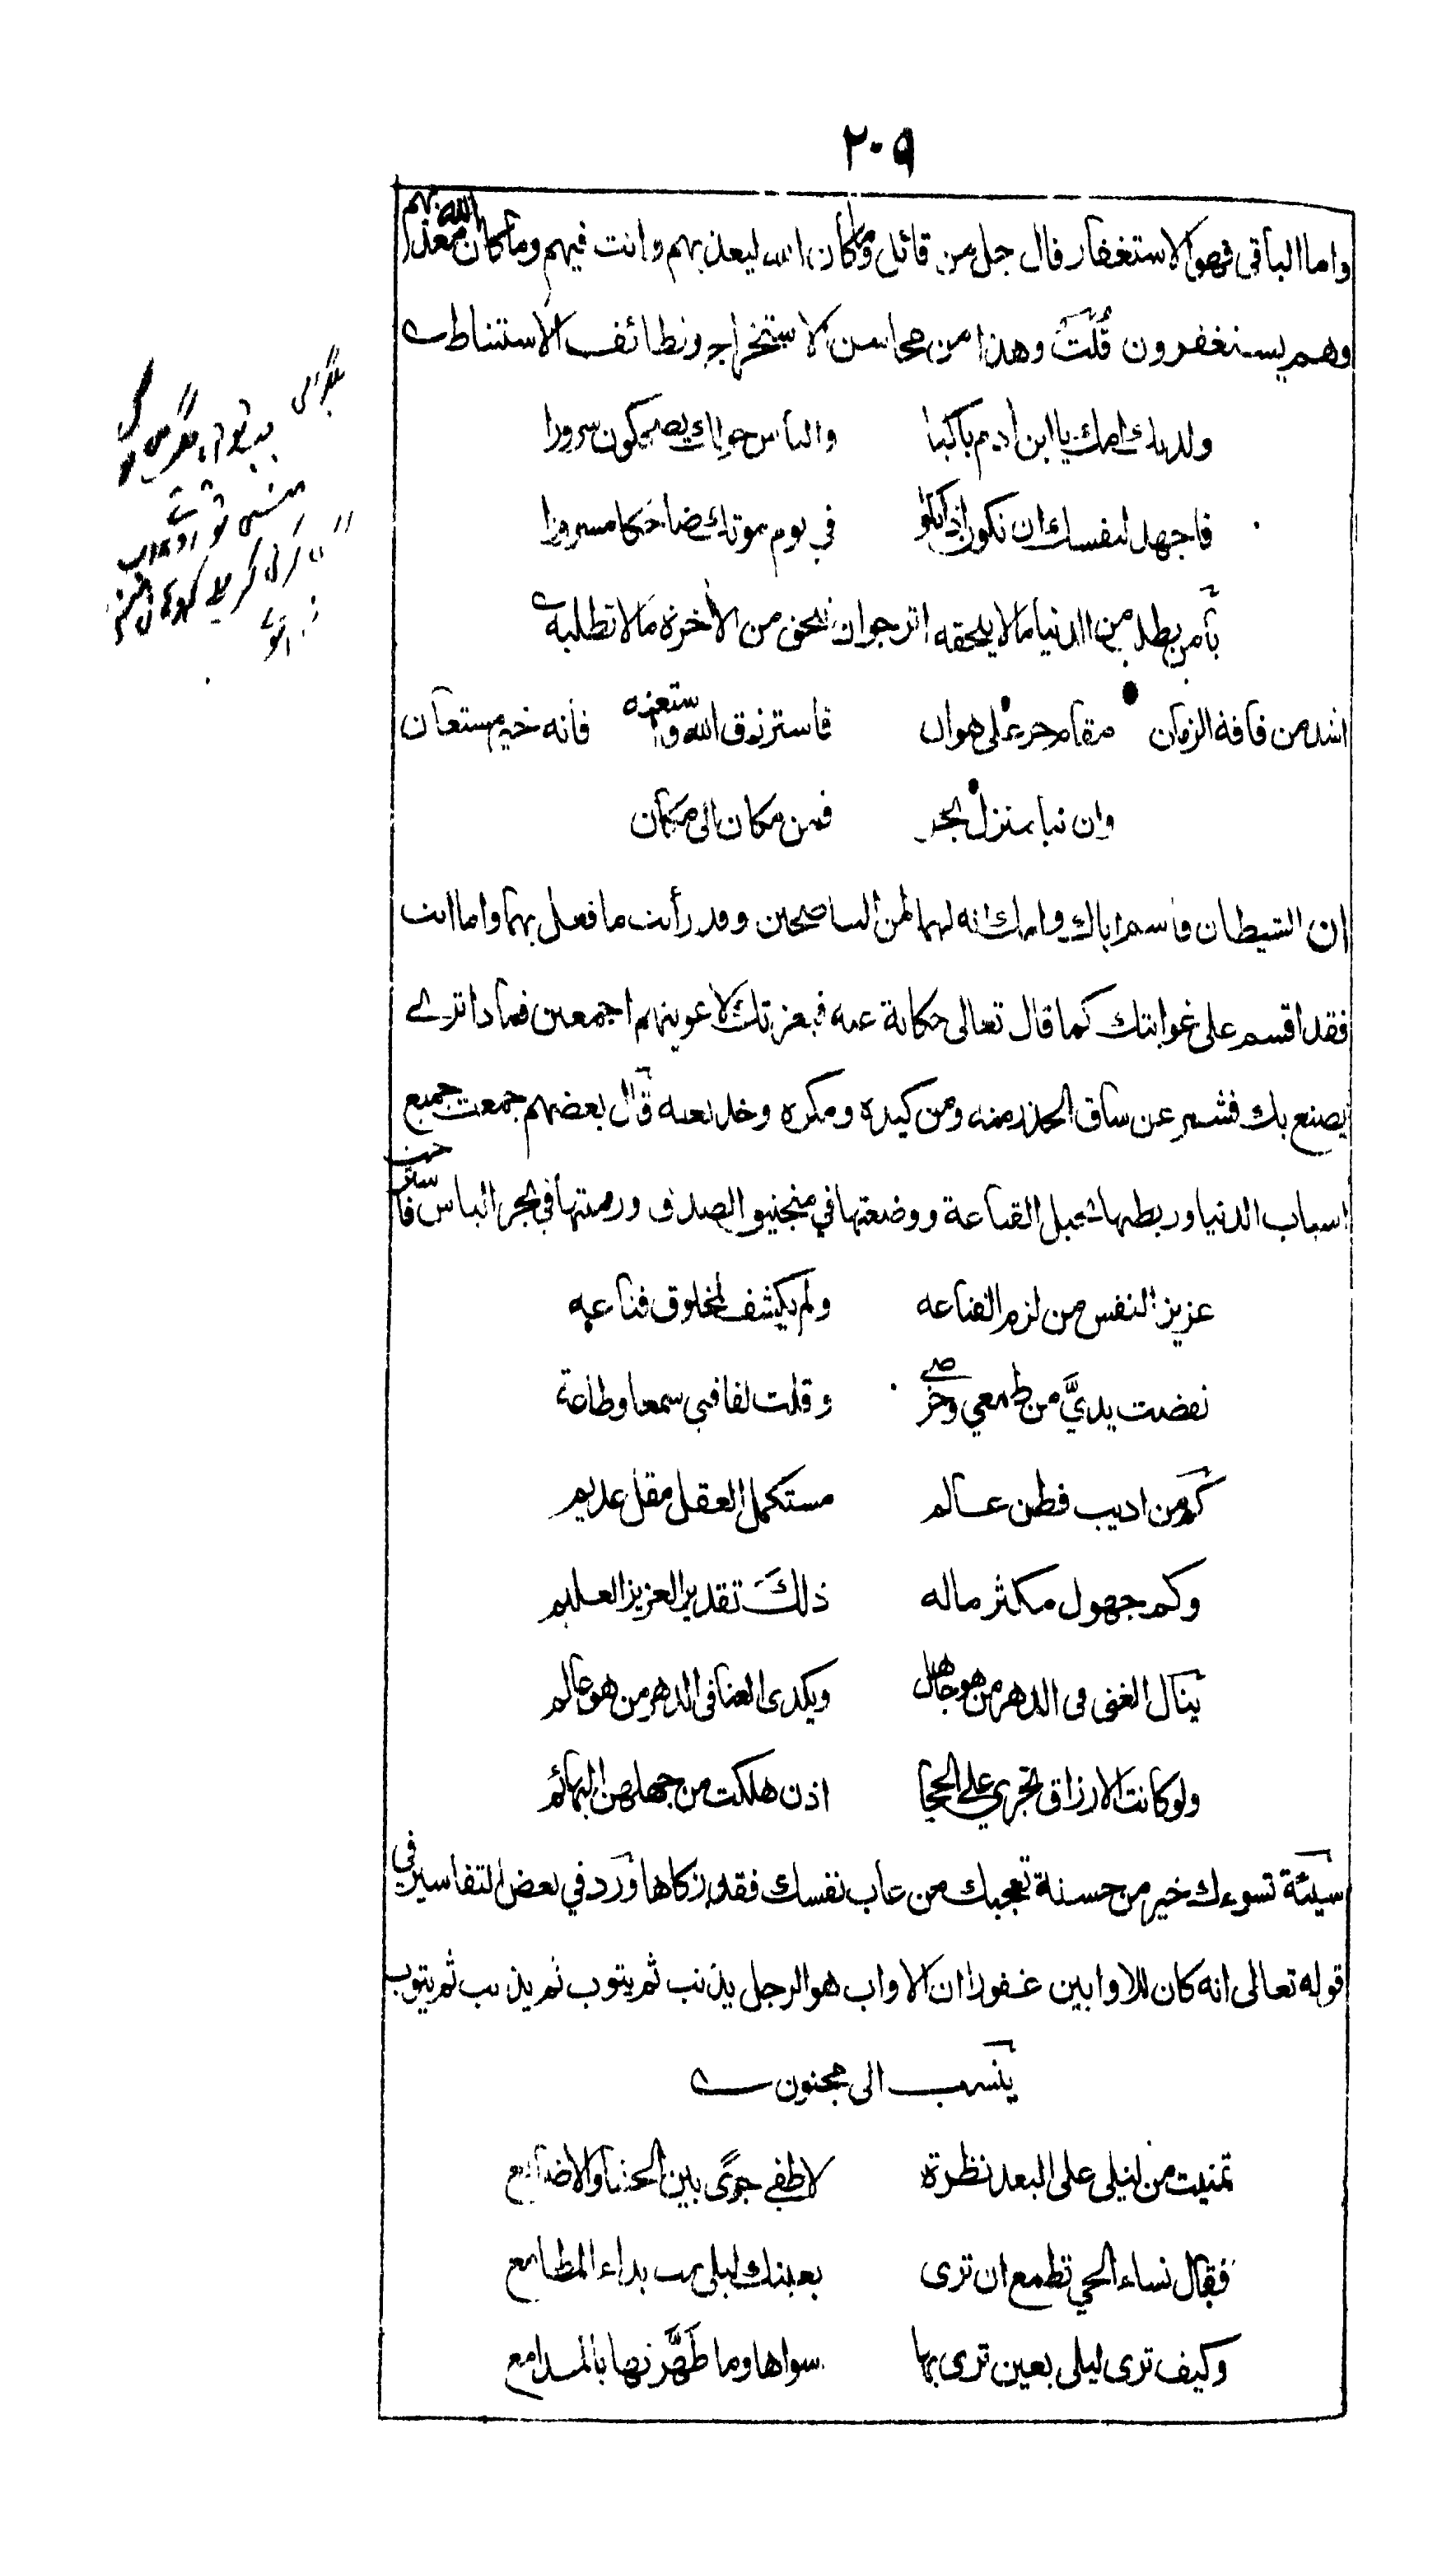 ٢٠٩
واما الباقي فهو الاستغفار قال جل من قائل وما كان الله ليعذبهم وانت فيهم وما كان الله معذبهم
وهم يستغفرون قلت وهذا من محاسن الاستخراج ونطائف الاستنباط
ولدتك امك يا ابن ادم باكيا والناس حولك يضحكون سرورا
فاجهد لنفسك ان تكون اذا بكوا في يوم موتك ضاحكا مسرورا
يا من يطلب من الدنيا ما لا يلحقه اترجو ان تلحق من الاخرة ما لا تطلبه
اشد من فاقة الزمان مقام حر على هوان فاسترزق الله واستعنه فانه خير مستعان
وان نبا منزل بحر فمن مكان الى مكان
ان الشيطان قاسم اباك وامك انه لهما لمن الناصحين وقد رأيت ما فعل بهما واما انت
فقد اقسم على غوايتك كما قال تعالى حكاية عنه فبعزتك لاغوينهم اجمعين فماذا ترى
يصنع بك فشمر عن ساق الحذر منه ومن كيده ومكره وخديعته قال بعضهم جمعت جميع
اسباب الدنيا وربطتها بحبل القناعة ووضعتها في منجنيق الصدق ورميتها في بحر الياس فاسترحت
عزيز النفس من لزم القناعه ولم يكشف لمخلوق قناعه
نفضت يديَّ من طمعي وحرصي وقلت لفاقتي سمعا وطاعة
كم من اديب فطن عالم مستكمل العقل مقل عديم
وكم جهول مكثر ماله ذلك تقدير العزيز العليم
ينال الغنى في الدهر من هو جاهل ويكدى الغنا في الدهر من هو عالم
ولو كانت الارزاق تجري على الحجا اذن هلكت من جهلهن البهائم
سيئة تسوءك خير من حسنة تعجبك من عاب نفسك فقد زكاها ورد في بعض التفاسير في
قوله تعالى انه كان للاوابين غفورا ان الاواب هو الرجل يذنب ثم يتوب ثم يذنب ثم يتوب
ينسب الى مجنون
تمنيت من ليلى على البعد نظرة لاطفي جوًى بين الحشا والاضالع
فقال نساء الحي تطمع ان ترى بعينك ليلى مت بداء المطامع
وكيف ترى ليلى بعين ترى بها سواها وما طهَّرتها بالمدامع